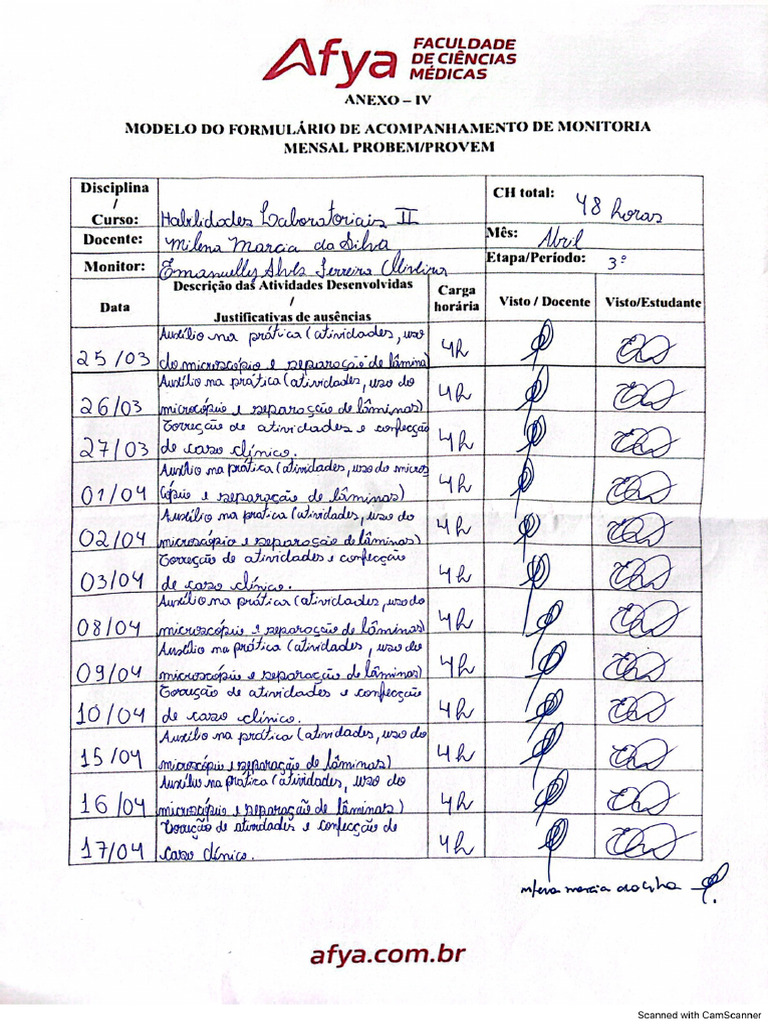 Afya FACULDADE
DE CIÊNCIAS
MÉDICAS
ANEXO – IV
MODELO DO FORMULÁRIO DE ACOMPANHAMENTO DE MONITORIA
MENSAL PROBEM/PROVEM
Disciplina
/
Curso: Habilidades Laboratoriais II
CH total: 48 horas
Docente: Milena Marcia da Silva
Mês: Abril
Monitor: Emanuelly Alves Ferreira Oliveira
Etapa/Período: 3º
Data
Descrição das Atividades Desenvolvidas
/
Justificativas de ausências
Carga
horária
Visto / Docente
Visto/Estudante
Auxílio na prática (atividades, uso
25/03 do microscópio e separação de lâmina) 4h
Auxílio na prática (atividades, uso do
26/03 microcópio e separação de lâminas) 4h
Correção de atividades e confecção
27/03 de caso clínico. 4h
Auxílio na prática (atividades, uso do micros
01/04 cópio e separação de lâminas) 4h
Auxílio na prática (atividades, uso do
02/04 microscópio e separação de lâminas) 4h
Correção de atividades e confecção
03/04 de caso clínico. 4h
Auxílio na prática (atividades, uso do
08/04 microscópio e separação de lâminas) 4h
Auxílio na prática (atividades, uso do
09/04 microscópio e separação de lâminas) 4h
Correção de atividades e confecção
10/04 de caso clínico. 4h
Auxílio na prática (atividades, uso do
15/04 microscópio e separação de lâminas) 4h
Auxílio na prática (atividades, uso do
16/04 microscópio e separação de lâminas) 4h
Correção de atividades e confecção de
17/04 caso clínico. 4h
Milena Marcia da Silva
afya.com.br
Scanned with CamScanner